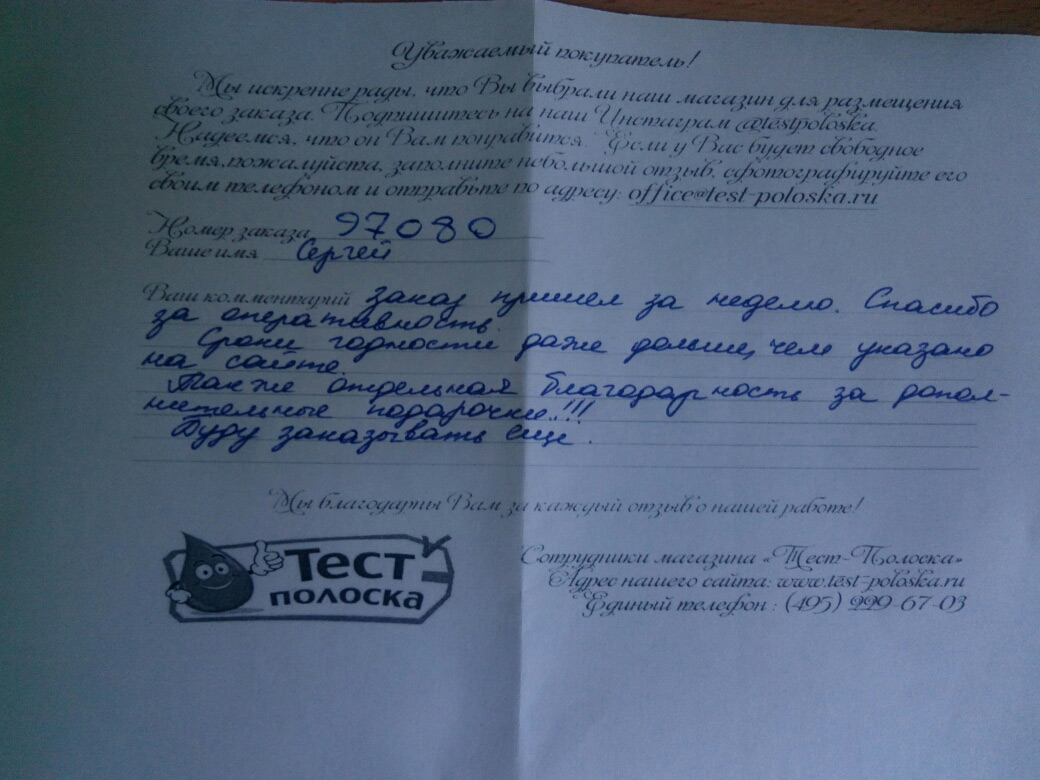 Уважаемый покупатель!
Мы искренне рады, что Вы выбрали наш магазин для размещения
своего заказа. Подпишитесь на наш Инстаграм @testpoloska.
Надеемся, что он Вам понравится. Если у Вас будет свободное
время,пожалуйста, заполните небольшой отзыв, сфотографируйте его
своим телефоном и отправьте по адресу: office@test-poloska.ru
Номер заказа 97080
Ваше имя Сергей
Ваш комментарий Заказ пришел за неделю. Спасибо
за оперативность.
Сроки годности даже дольше, чем указано
на сайте.
Также отдельная благодарность за допол-
нительные подарочки!!!
Буду заказывать еще.
Мы благодарны Вам за каждый отзыв о нашей работе!
Тест
полоска
Сотрудники магазина «Тест-Полоска»
Адрес нашего сайта: www.test-poloska.ru
Единый телефон : (495) 999-67-03